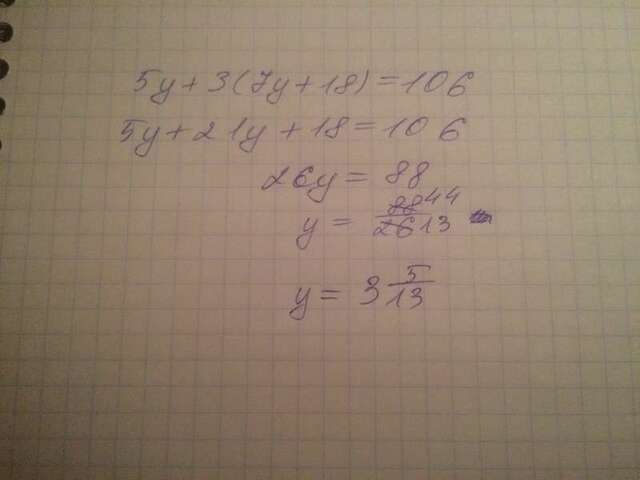 5y + 3(7y + 18) = 106
5y + 21y + 18 = 106
26y = 88
y = 88/26 44/13
y = 3 5/13